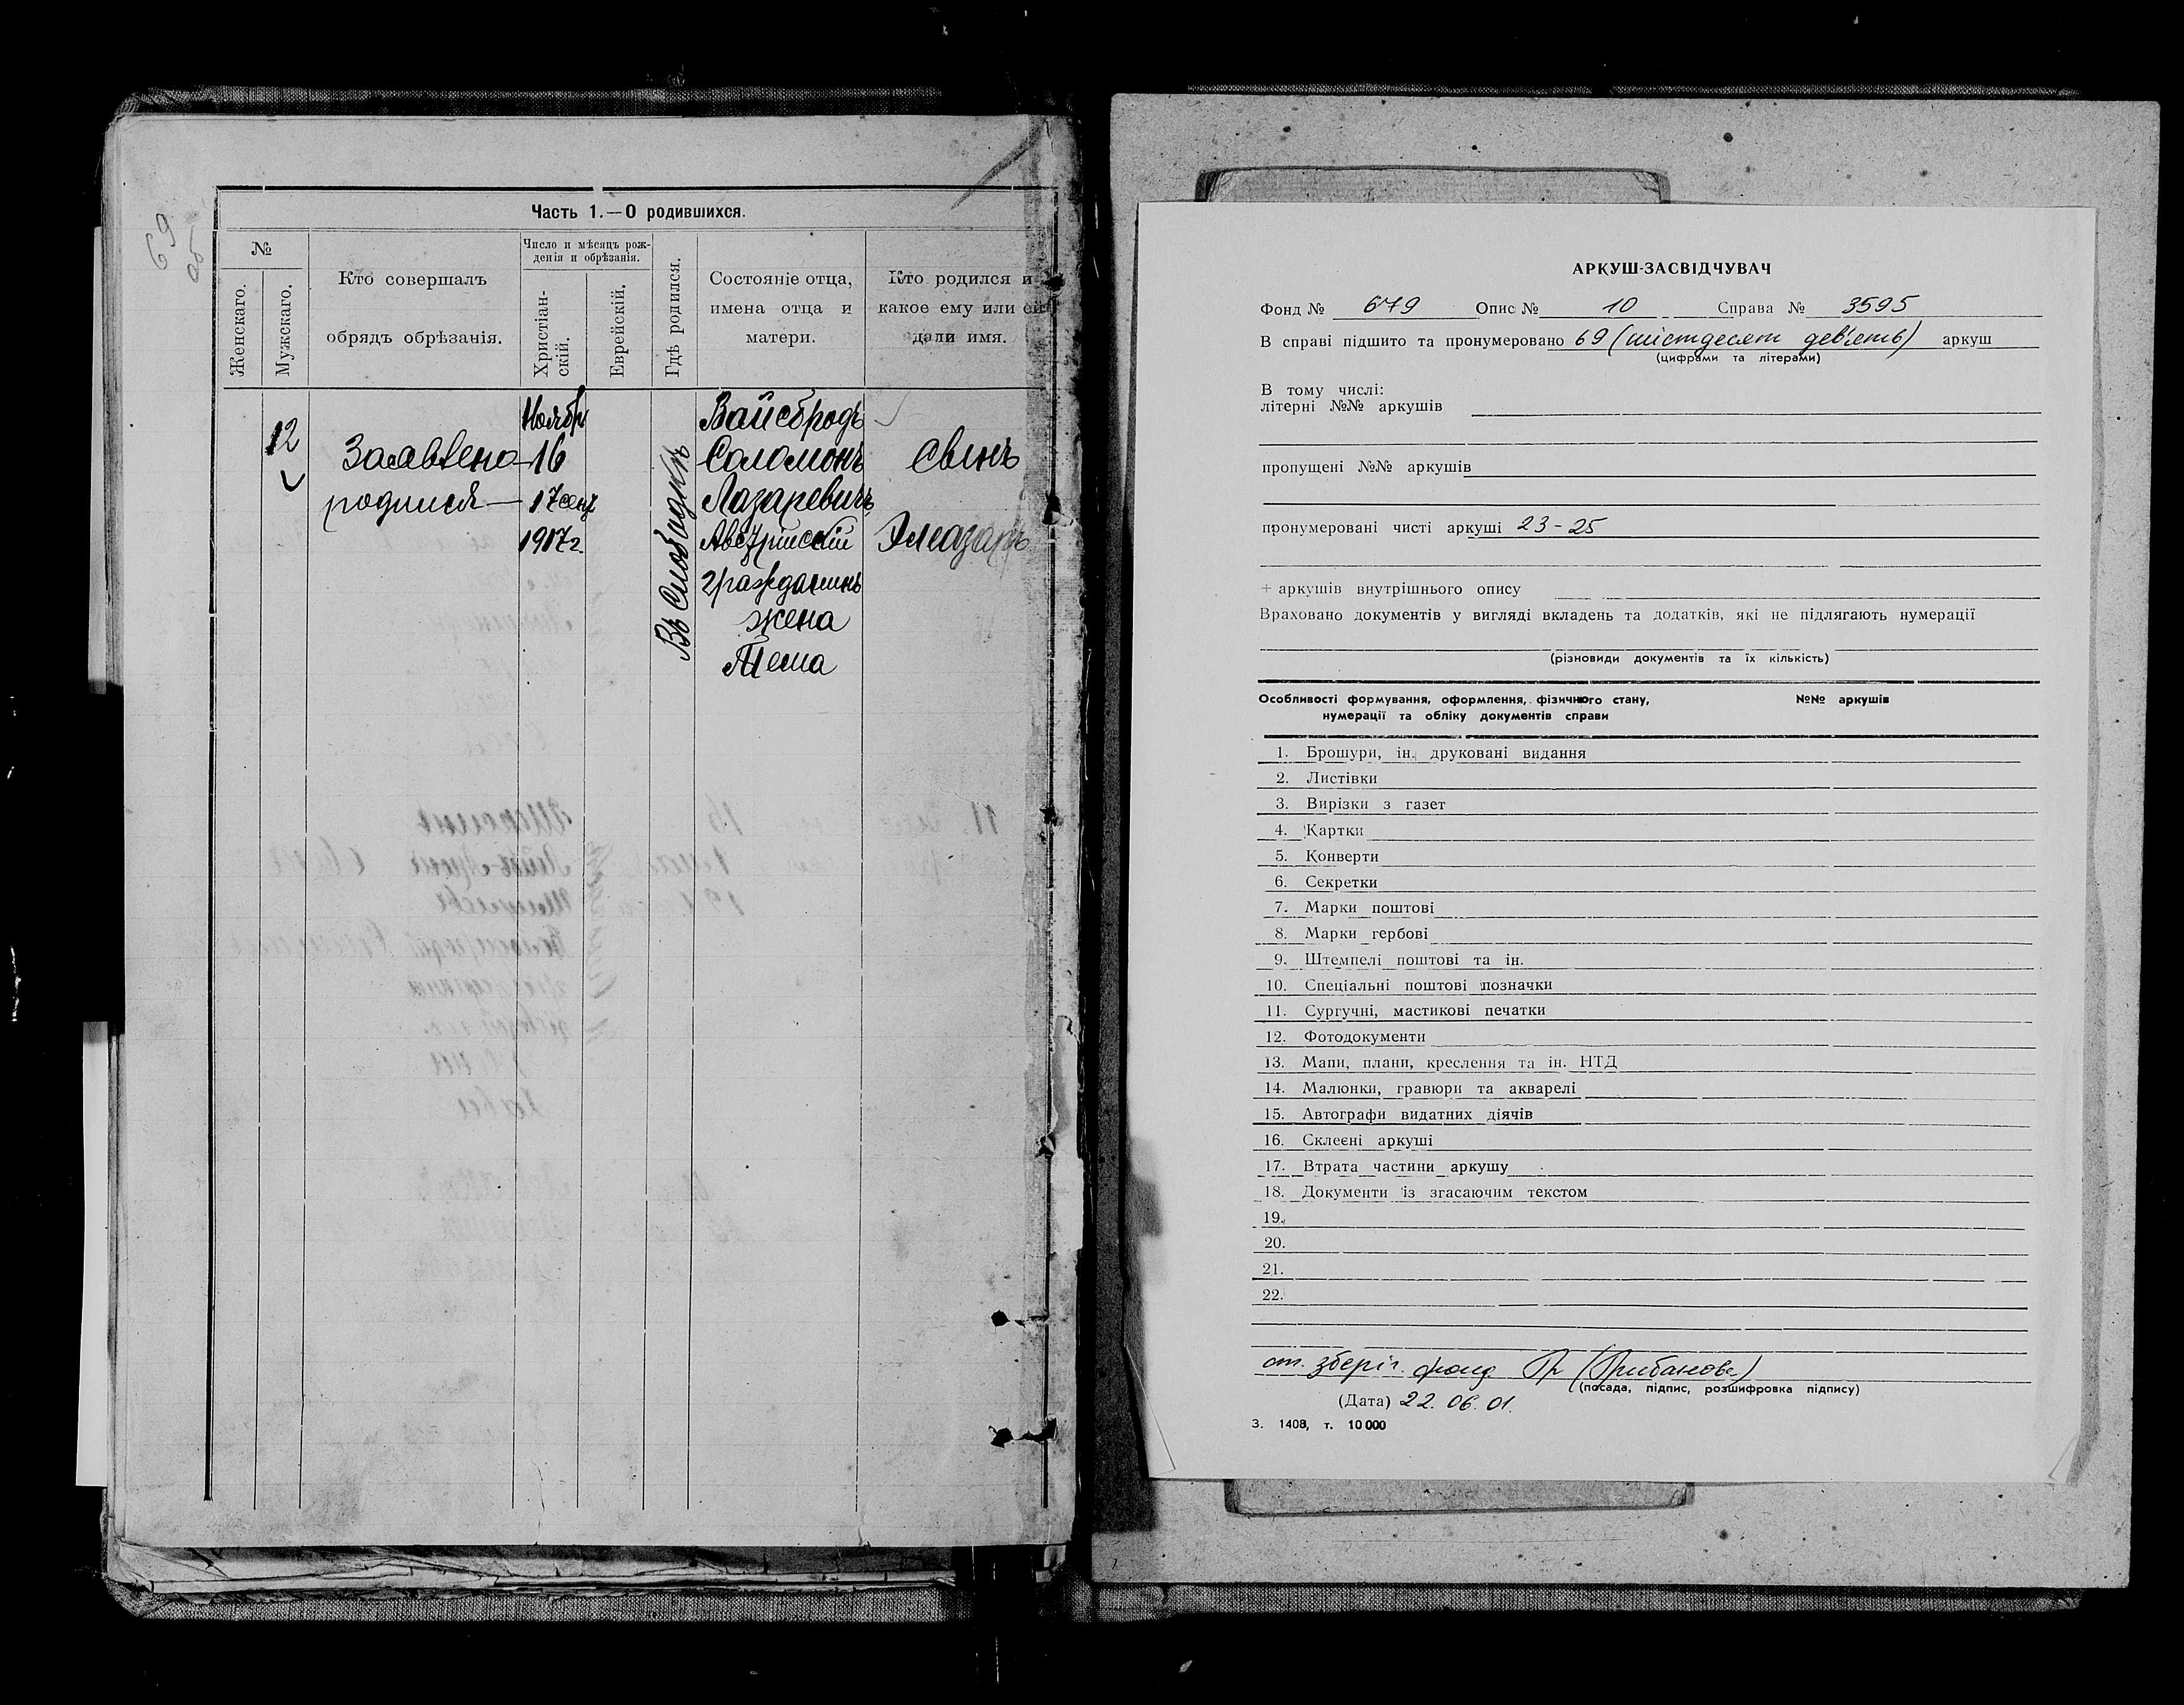 69
об
Часть 1.—О родившихся.
№
Женскаго.
Мужскаго.
Кто совершалъ
обрядъ обрѣзанія.
Число и мѣсяцъ рож-
денія и обрѣзанія.
Христіан-
скій.
Еврейскій.
Гдѣ родился.
Состояніе отца,
имена отца и
матери.
Кто родился и
какое ему или ей
дали имя.
12
Заявлено
родился —
Ноябр
16
17 сент
1917 г.
Въ Слободкѣ
Вайсбродъ
Соломонъ
Лазаревичъ
Австрійскій
гражданинъ
жена
сынъ
Элеазаръ
АРКУШ-ЗАСВІДЧУВАЧ
Фонд № 679 Опис № 10 Справа № 3595
В справі підшито та пронумеровано 69 (шістдесят дев'ять) аркуш
(цифрами та літерами)
В тому числі:
літерні №№ аркушів
пропущені №№ аркушів
пронумеровані чисті аркуші 23-25
+ аркушів внутрішнього опису
Враховано документів у вигляді вкладень та додатків, які не підлягають нумерації
(різновиди документів та їх кількість)
Особливості формування, оформлення, фізичного стану,
нумерації та обліку документів справи
№№ аркушів
1. Брошури, ін. друковані видання
2. Листівки
3. Вирізки з газет
4. Картки
5. Конверти
6. Секретки
7. Марки поштові
8. Марки гербові
9. Штемпелі поштові та ін.
10. Спеціальні поштові позначки
11. Сургучні, мастикові печатки
12. Фотодокументи
13. Мапи, плани, креслення та ін. НТД
14. Малюнки, гравюри та акварелі
15. Автографи видатних діячів
16. Склеєні аркуші
17. Втрата частини аркушу
18. Документи із згасаючим текстом
19.
20.
21.
22.
ст. зберіг. фонд
(посада, підпис, розшифровка підпису)
(Дата) 22.06.01.
З. 1408, т. 10 000